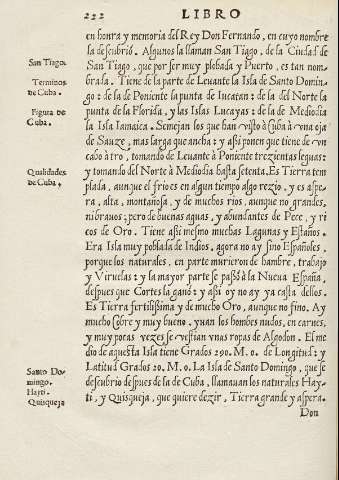 222 LIBRO
en honra y memoria del Rey Don Fernando, en cuyo nombre
la descubriò. Algunos la llaman San Tiago, de la Ciudad de
San Tiago.
San Tiago, que por ser muy poblada y Puerto, es tan nom-
brada. Tiene de la parte de Leuante la Isla de Santo Domin-
Terminos de Cuba.
go: de la de Poniente la punta de Iucatan: de la del Norte la
punta de la Florida, y las Islas Lucayas: de la de Mediodia
Figura de Cuba.
la Isla Iamaica. Semejan los que han visto à Cuba à vna oja
de Sauze, mas larga que ancha: y assi ponen que tiene de vn
cabo à tro, tomando de Leuante à Poniente trezientas leguas:
Qualidades de Cuba.
y tomando del Norte à Mediodia hasta setenta. Es Tierra tem
plada, aunque el frio es en algun tiempo algo rezio, y es aspe-
ra, alta, montañosa, y de muchos rios, aunque no grandes,
ni brauos: pero de buenas aguas, y abundantes de Pece, y ri
cos de Oro. Tiene assi mesmo muchas Lagunas y Estaños.
Era Isla muy poblada de Indios, agora no ay sino Españoles,
porque los naturales, en parte murieron de hambre, trabajo
y Viruelas: y la mayor parte se passò a la Nueua España,
despues que Cortes la ganò: y assi oy no ay ya casta dellos.
Es Tierra fertilissima y de mucho Oro, aunque no fino. Ay
mucho Cobre y muy bueno. yuan los hombres nudos, en carnes,
y muy pocas vezes se vestian vnas ropas de Algodon. El me
dio de aquesta Isla tiene Grados 290. M. 0. de Longitud: y
Latitud Grados 20. M. 0. La Isla de Santo Domingo, que se
Santo Do-
mingo.
Hayti.
Quisqueja
descubrio despues de la de Cuba, llamauan los naturales Hay-
ti, y Quisqueja, que quiere dezir, Tierra grande y aspera.
Don